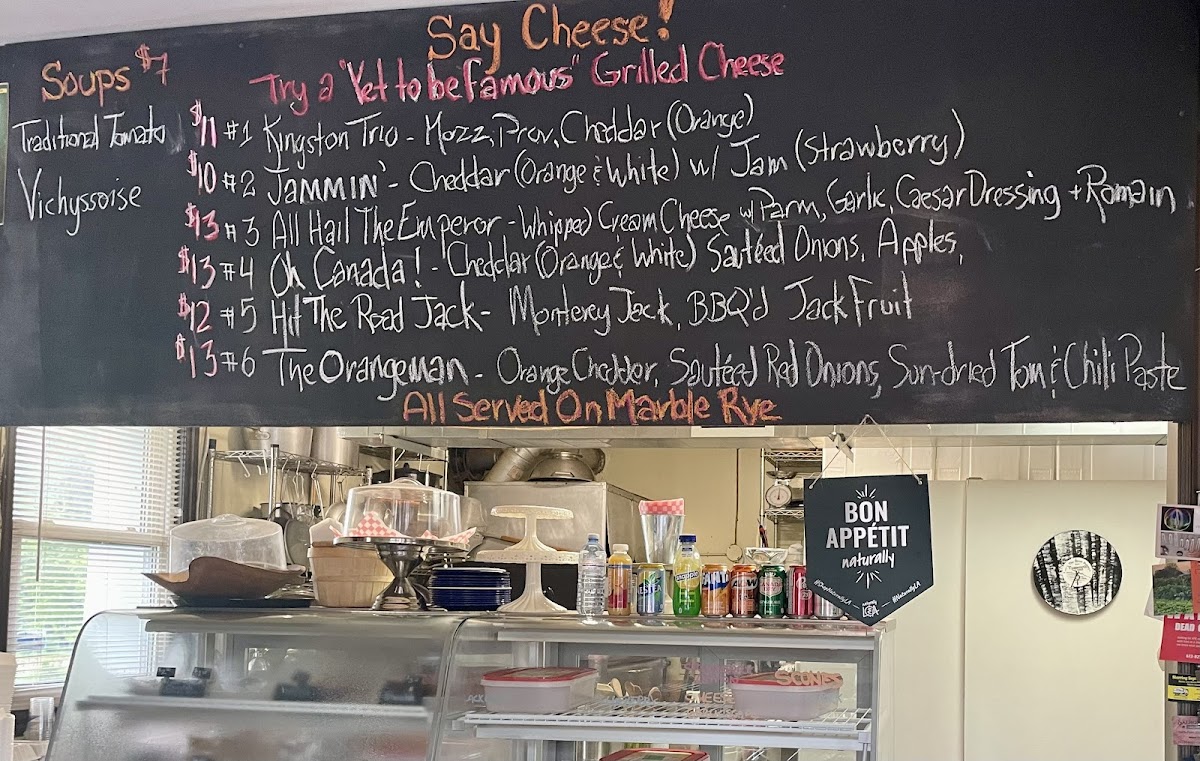 Say Cheese!
Soups $7
Try a "Yet to be Famous" Grilled Cheese
Traditional Tomato
Vichyssoise
$11 #1 Kingston Trio - Mozz, Prov, Cheddar (Orange)
$10 #2 JAMMIN' - Cheddar (Orange & White) w/ Jam (Strawberry)
$13 #3 All Hail The Emperor - Whipped Cream Cheese w/ Parm, Garlic, Caesar Dressing + Romain
$13 #4 Oh Canada! - Cheddar (Orange & White) Sautéed Onions, Apples,
$12 #5 Hit The Road Jack - Monterey Jack, BBQ'd Jack Fruit
$13 #6 The Orangeman - Orange Chedder, Sautéed Red Onions, Sun-dried Tom & Chili Paste
All Served On Marble Rye
BON
APPÉTIT
naturally
SCONES
DEAD